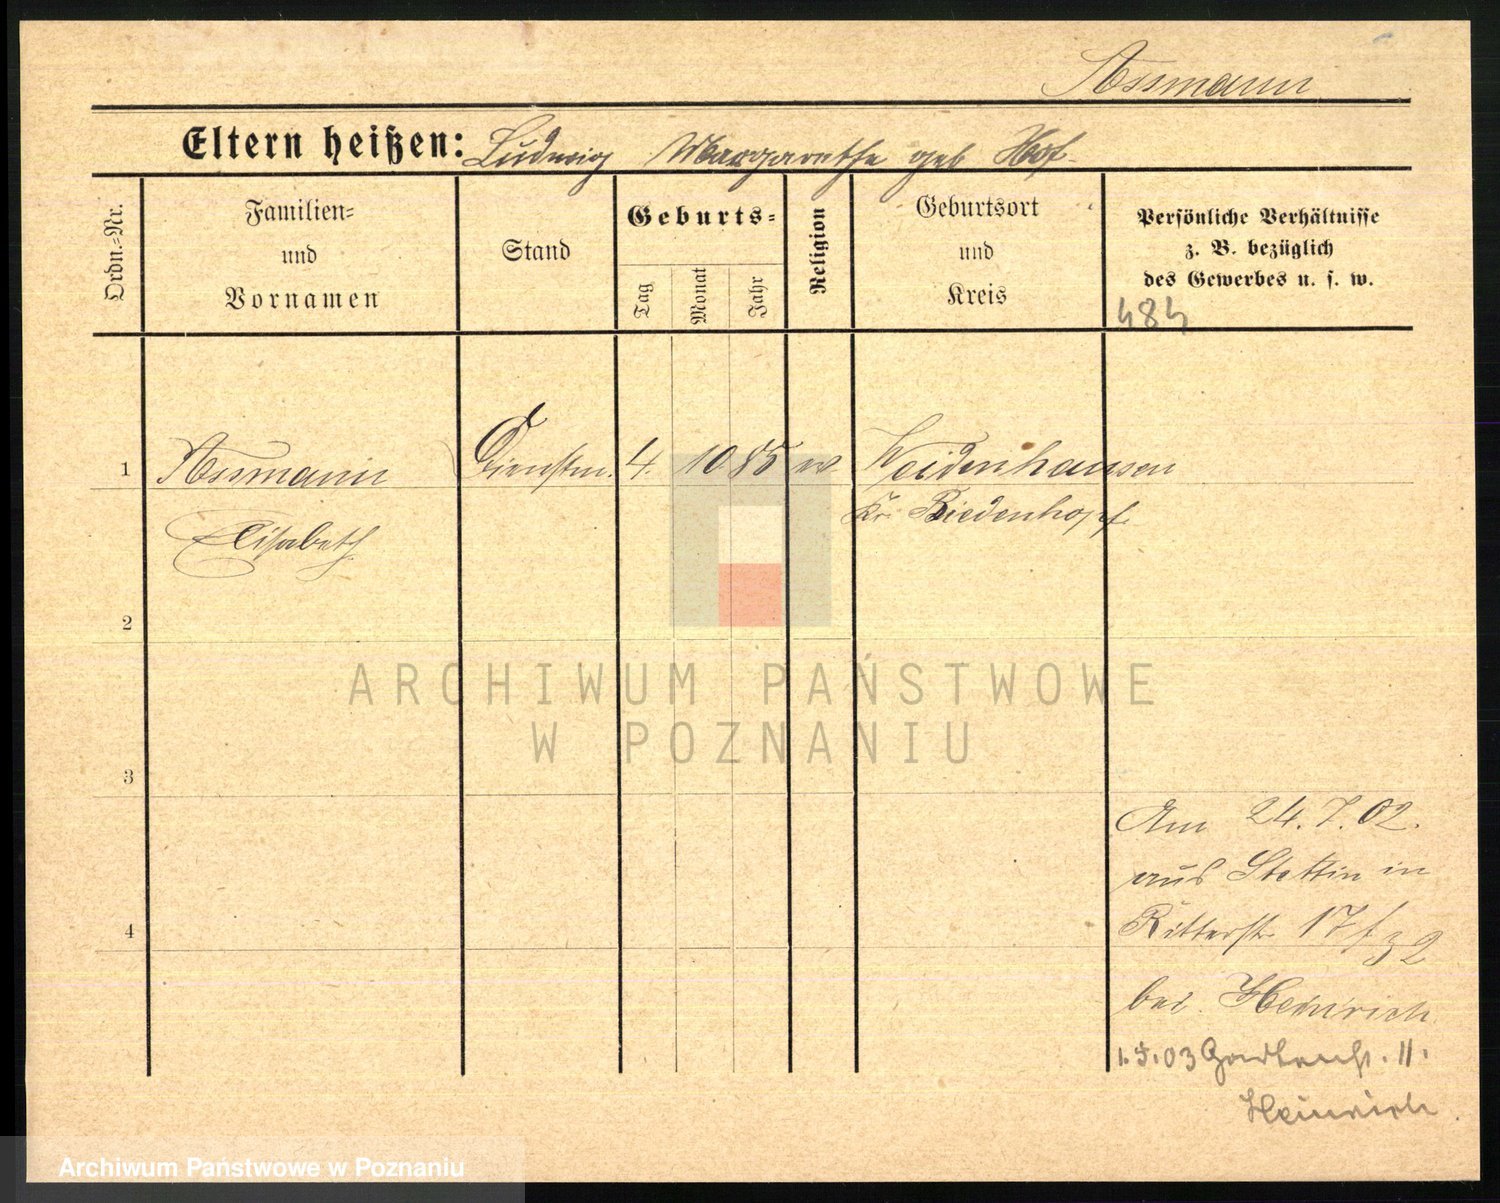 Assmann
Eltern heißen: Ludwig Margarethe geb Hof
Ordn.-Nr.
Familien-
und
Vornamen
Stand
Geburts-
Tag
Monat
Jahr
Religion
Geburtsort
und
Kreis
Persönliche Verhältnisse
z. B. bezüglich
des Gewerbes u. s. w.
484
1 Assmann Dienstm. 4. 10 85 ev Weidenhausen
Elisabeth Kr. Biedenkopf
2
3
4
Am 24.7.02.
aus Stettin in
Ritterstr 17
bei Heinrich
1.5.03 11.
Heinrich
ARCHIWUM PAŃSTWOWE
W POZNANIU
Archiwum Państwowe w Poznaniu